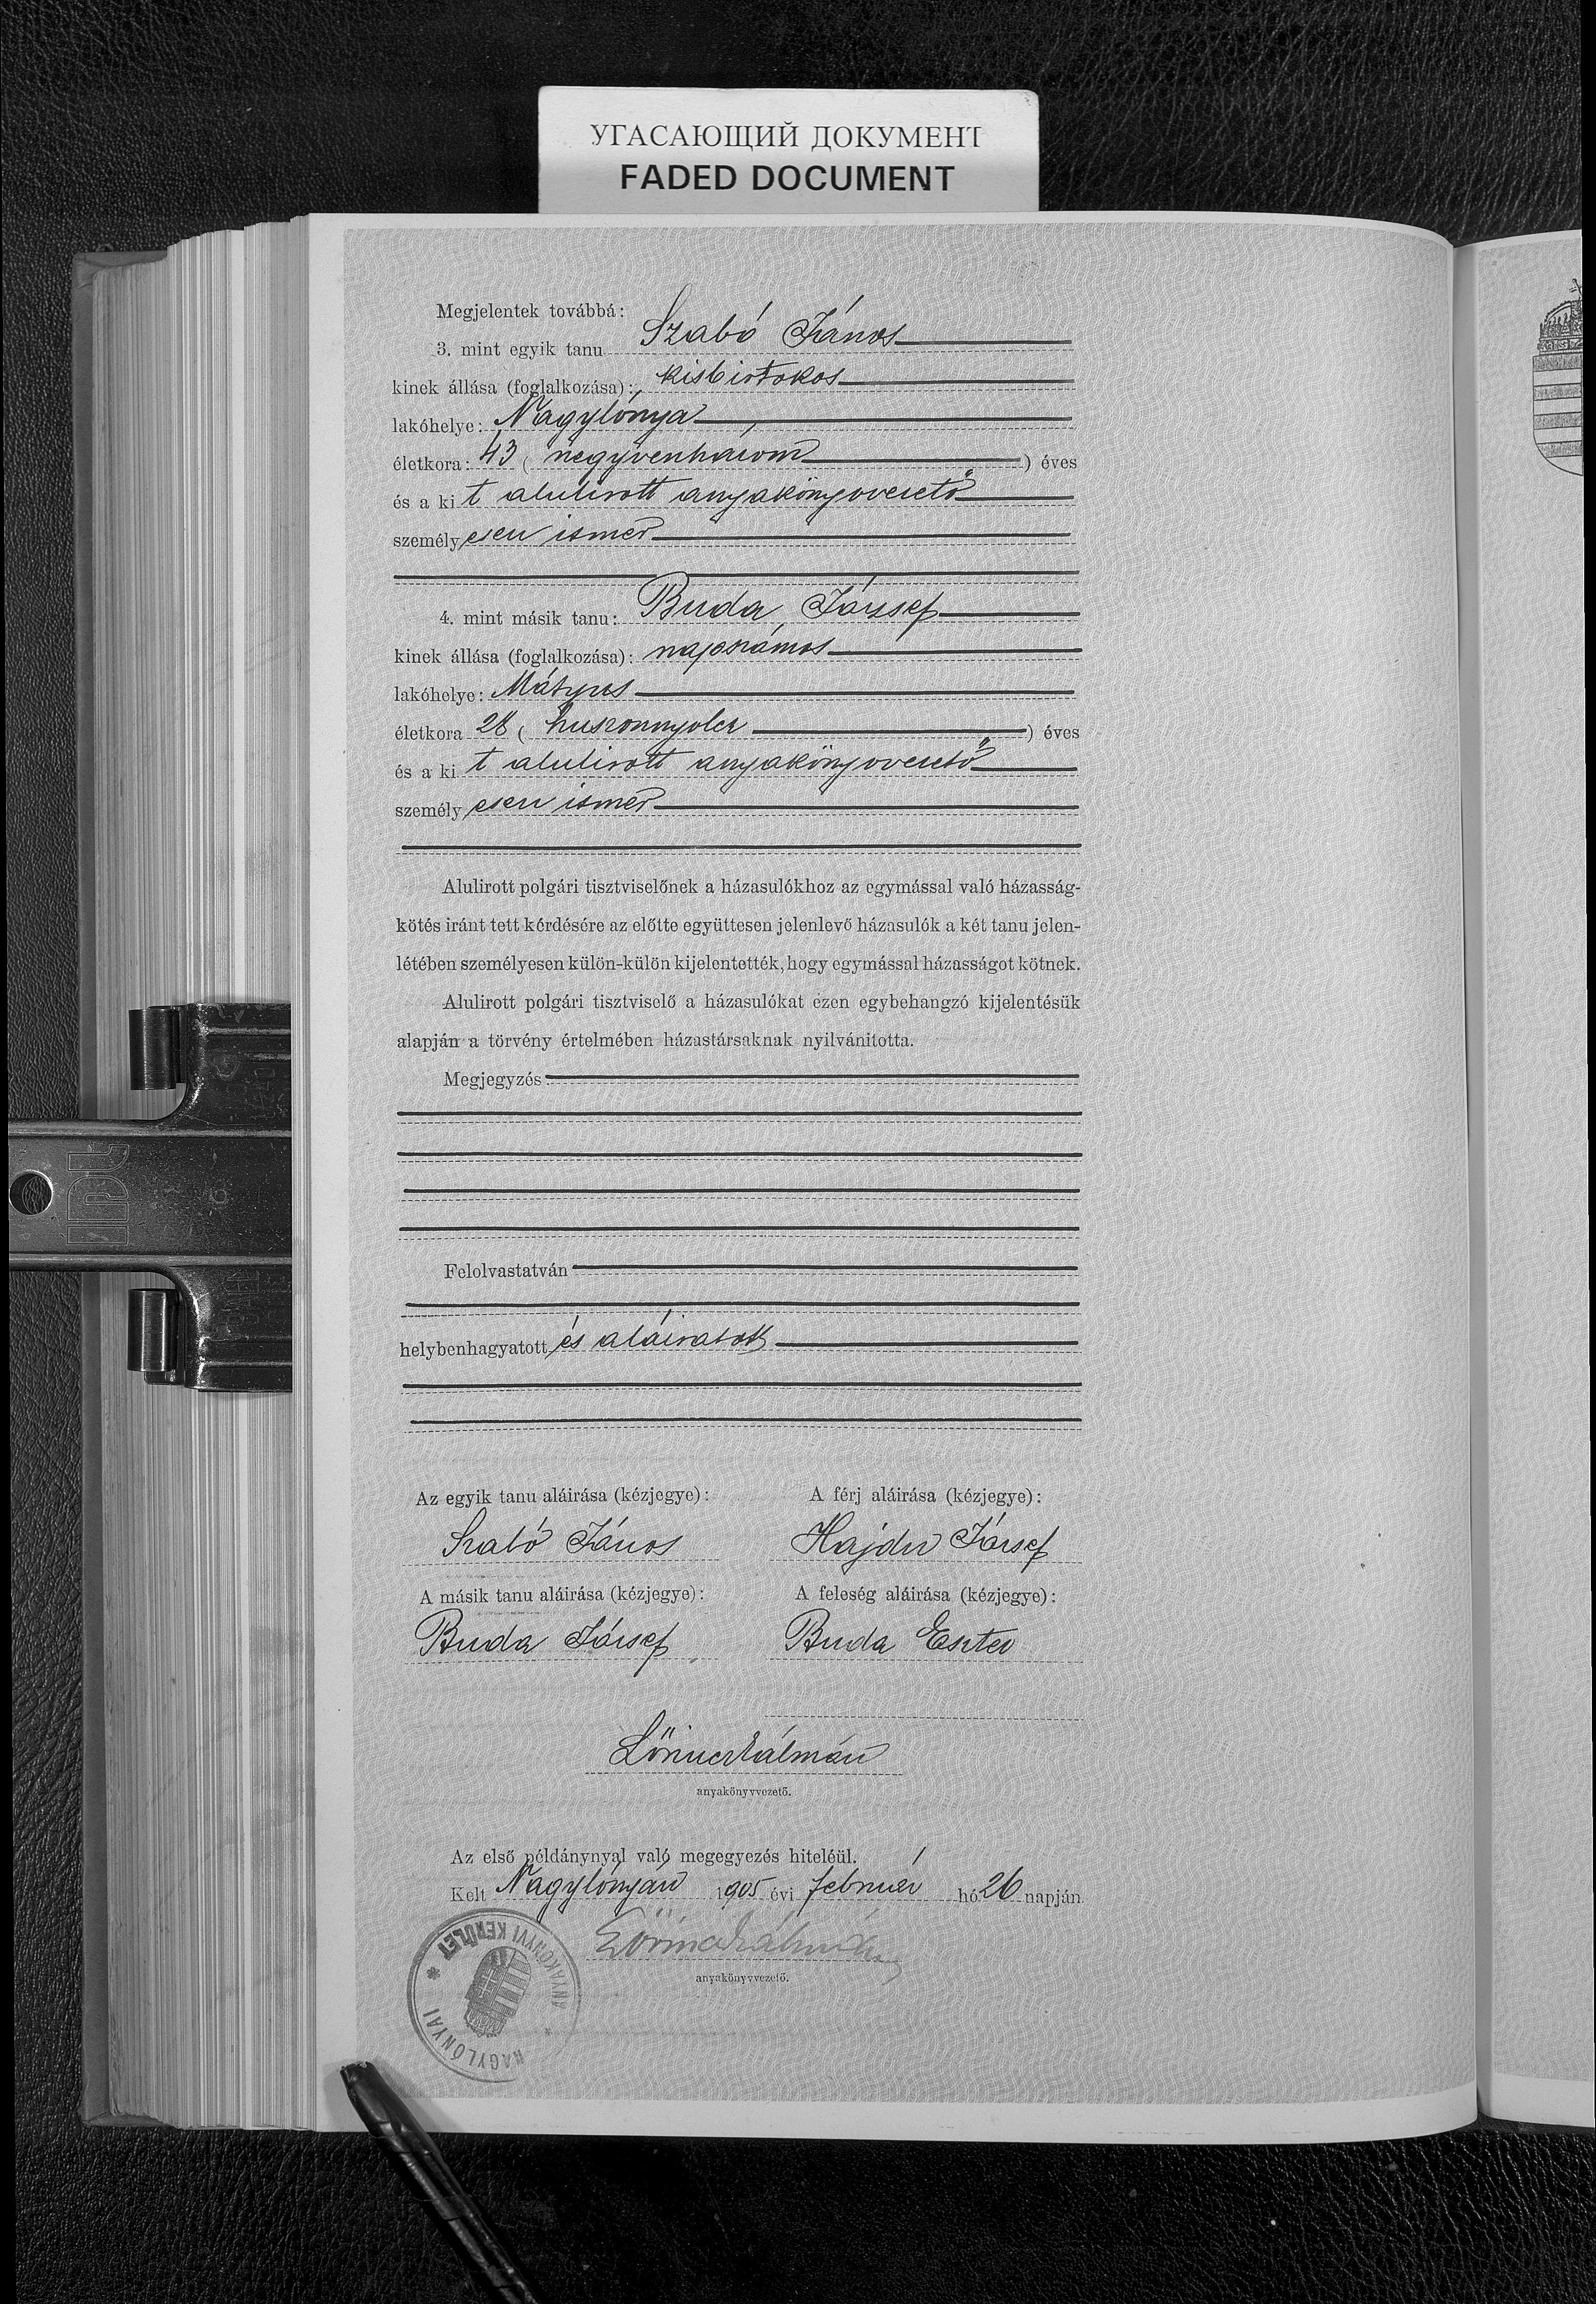 УГАСАЮЩИЙ ДОКУМЕНТ
FADED DOCUMENT
Megjelentek továbbá:
3. mint egyik tanu Szabó János
kinek állása (foglalkozása): kisbirtokos
lakóhelye: Nagylónya,
életkora: 43 (negyvenhárom) éves
és a kit alulirott anyakönyvvezető
személyesen ismer
4. mint másik tanu: Buda József
kinek állása (foglalkozása): napszámos
lakóhelye: Mátyus
életkora 28 (huszonnyolcz) éves
és a kit alulirott anyakönyvvezető
személyesen ismer
Alulirott polgári tisztviselőnek a házasulókhoz az egymással való házasság-
kötés iránt tett kérdésére az előtte együttesen jelenlevő házasulók a két tanu jelen-
létében személyesen külön-külön kijelentették, hogy egymással házasságot kötnek.
Alulirott polgári tisztviselő a házasulókat ezen egybehangzó kijelentésük
alapján a törvény értelmében házastársaknak nyilvánitotta.
Megjegyzés
Felolvastatván
helybenhagyatott és aláiratott
Az egyik tanu aláirása (kézjegye): A férj aláirása (kézjegye):
Szabó János Hajdu József
A másik tanu aláirása (kézjegye): A feleség aláirása (kézjegye):
Buda József Buda Eszter
Lőrincz Kálmán
anyakönyvvezető.
Az első példánynyal való megegyezés hiteléül.
Kelt Nagylónyán 1905 évi február hó 26 napján
Lőrincz Kálmán
anyakönyvvezető.
NAGYLÓNYAI * ANYAKÖNYVI KERÜLET *